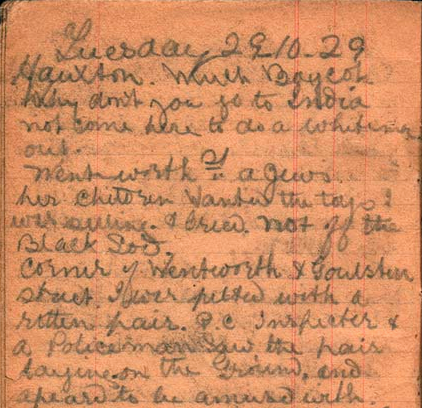 Tuesday 29-10-29
Hauxton. Much Boycot
Why don't you go to India
not come here to do a whiteman
out.
Wentworth St a Jews.
her children wanted the tops I
was selling. I cried. not off the
Black Sod.
Corner of Wentworth & Goulston
street I wer pelted with a
rotten pair. P.C. Inspecter &
a Policeman Saw the pair
laying on the Ground. and
apeard to be amused with.